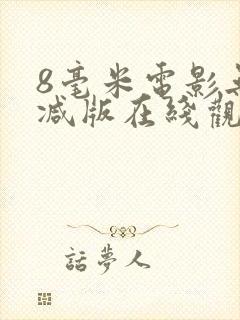 8毫米電影
減版在綫觀
話夢人